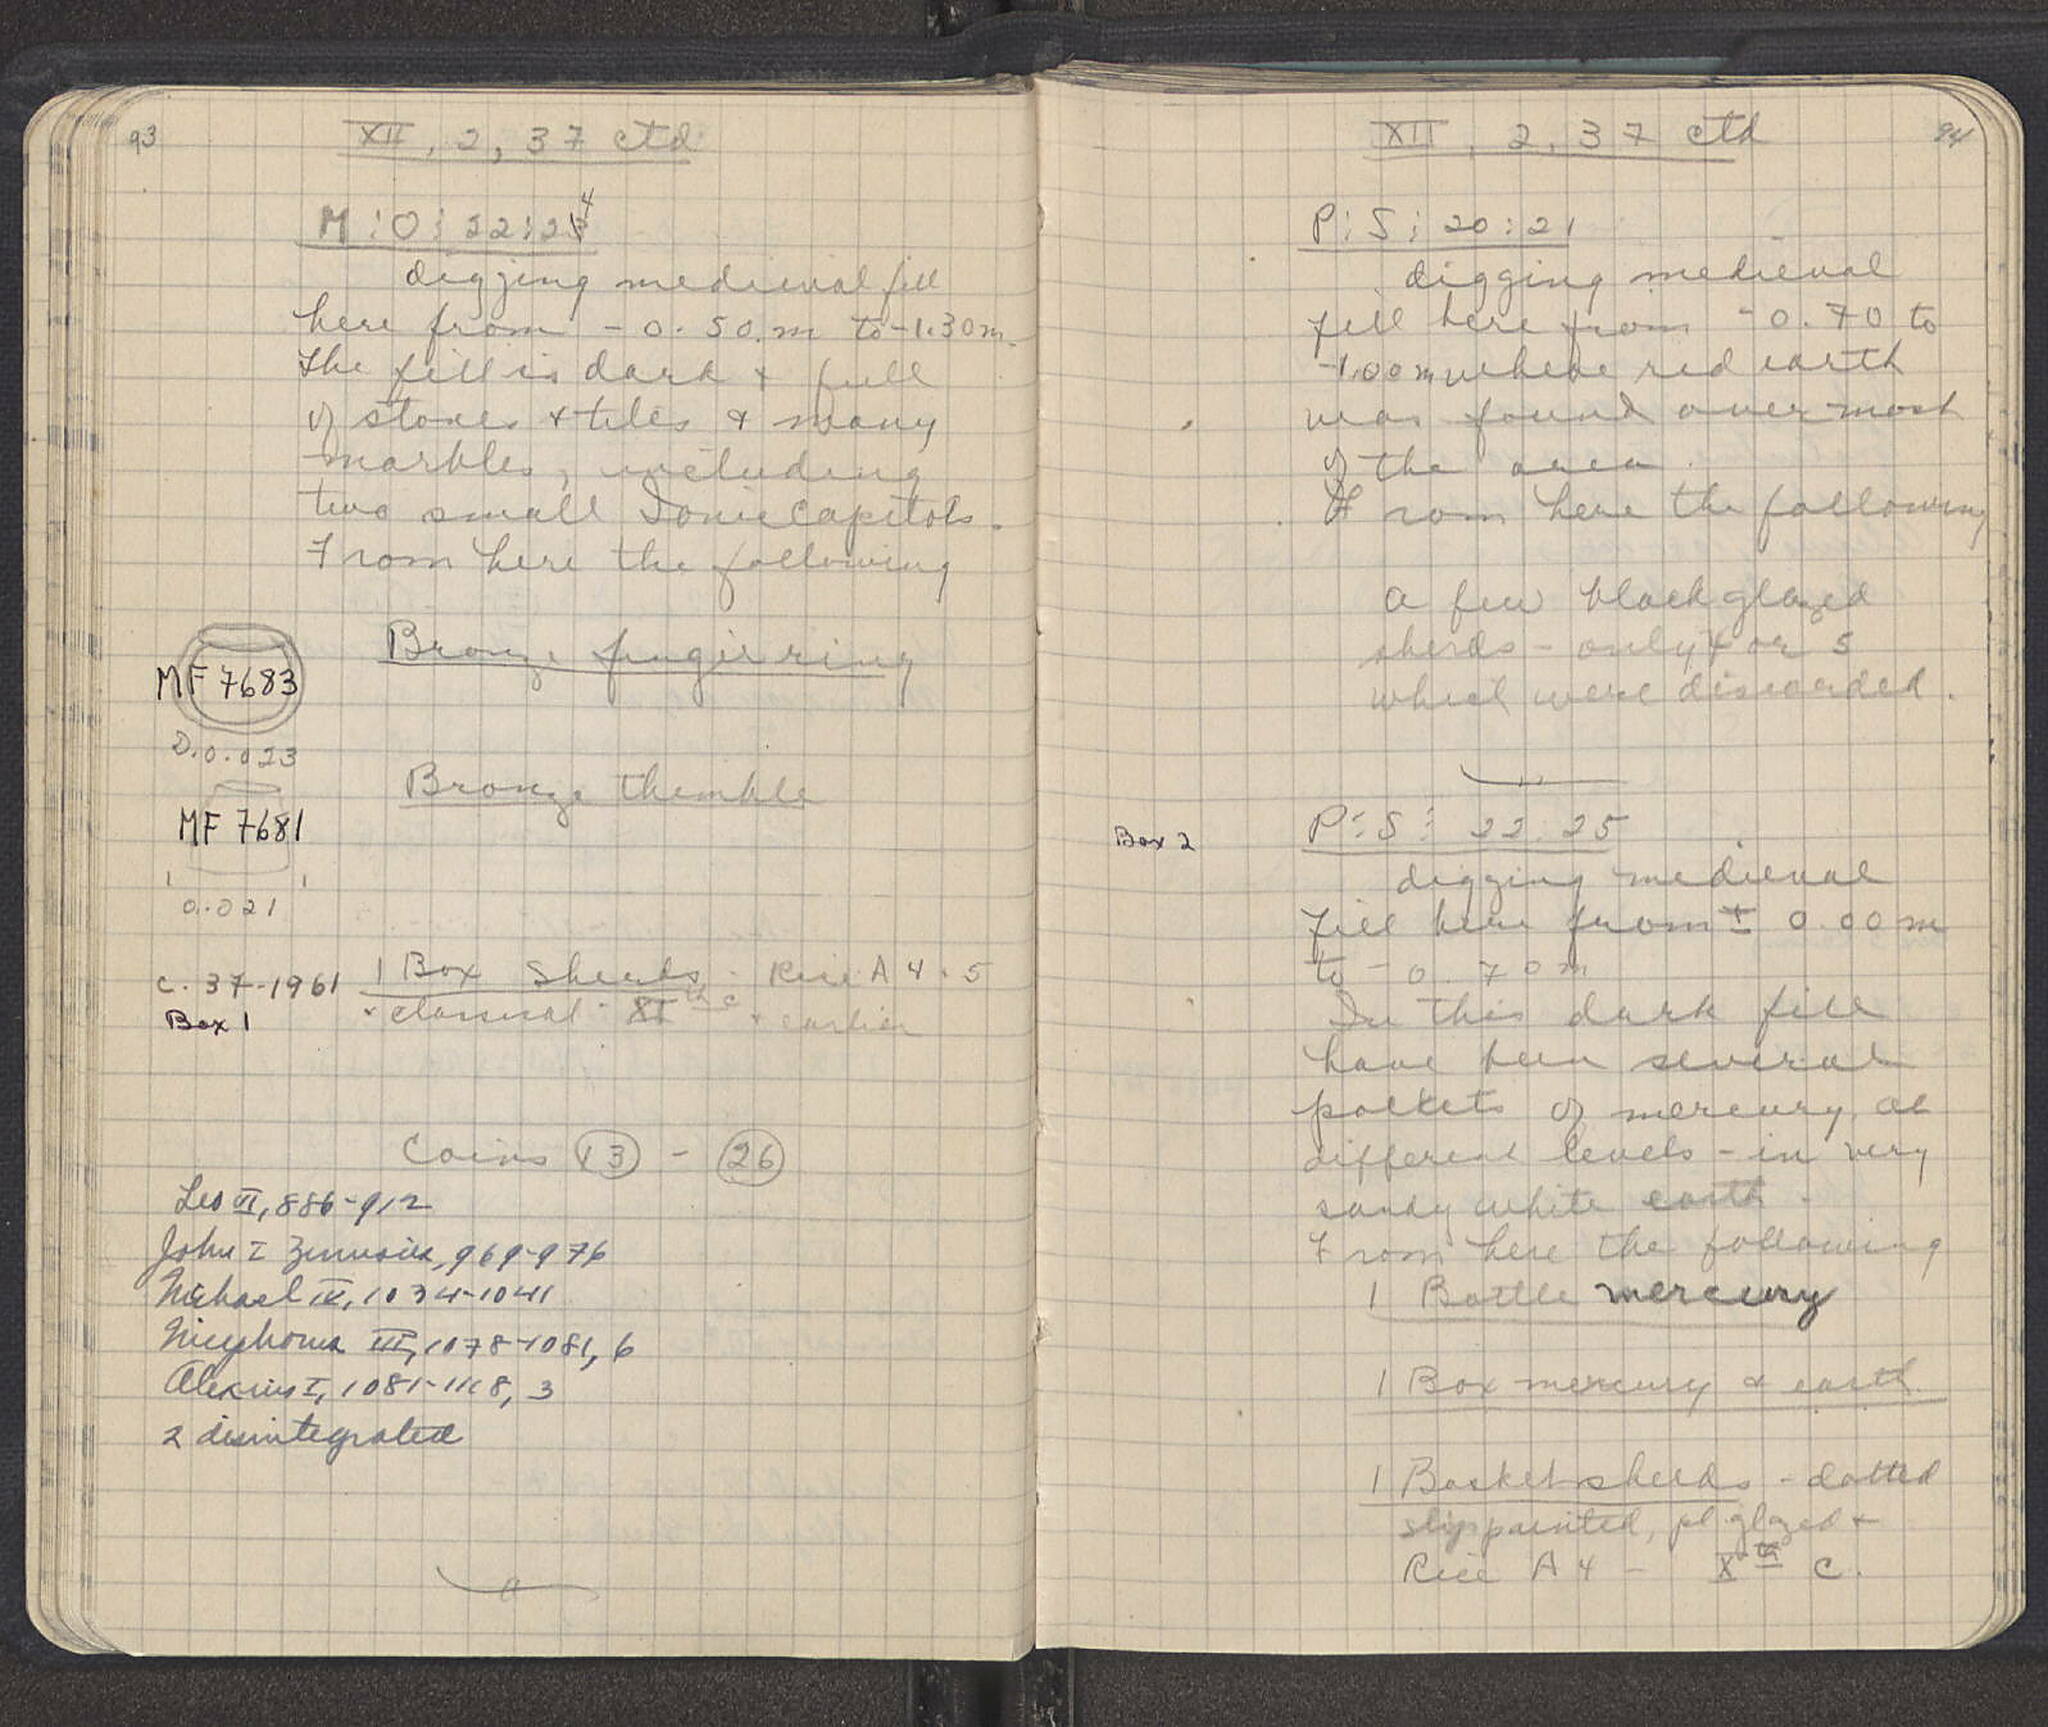 93
XII, 2, 37 ctd
M:O:22:24
digging medieval fill
here from -0.50.m to -1.30m.
The fill is dark & full
of stones & tiles & many
marbles, including
two small Ionic Capitols.
From here the following
Bronze finger ring
MF 7683
D. 0.023
Bronze thimble
MF 7681
0.021
C. 37-1961
Box 1
1 Box Sherds - Rice A 4-5
& classical XIth c & earlier
Coins 13 - 26
Leo VI, 886-912
John I Zimisces, 969-976
Michael IV, 1034-1041
Nicephorus III, 1078-1081, 6
Alexius I, 1081-1118, 3
2 disintegrated
94
XII, 2, 37 ctd
P:S:20:21
digging medieval
fill here from -0.70 to
-1.00m where red earth
was found over most
of the area.
From here the following
a few black glazed
sherds - only 4 or 5
which were discarded.
Box 2
P:S:22.25
digging medieval
fill here from ± 0.00m
to -0.70m
In this dark fill
have been several
pockets of mercury, at
different levels - in very
sandy white earth.
From here the following
1 Bottle mercury
1 Box mercury & earth
1 Basket sherds - dotted
slip painted, pl. glazed &
Rice A 4 - Xth C.